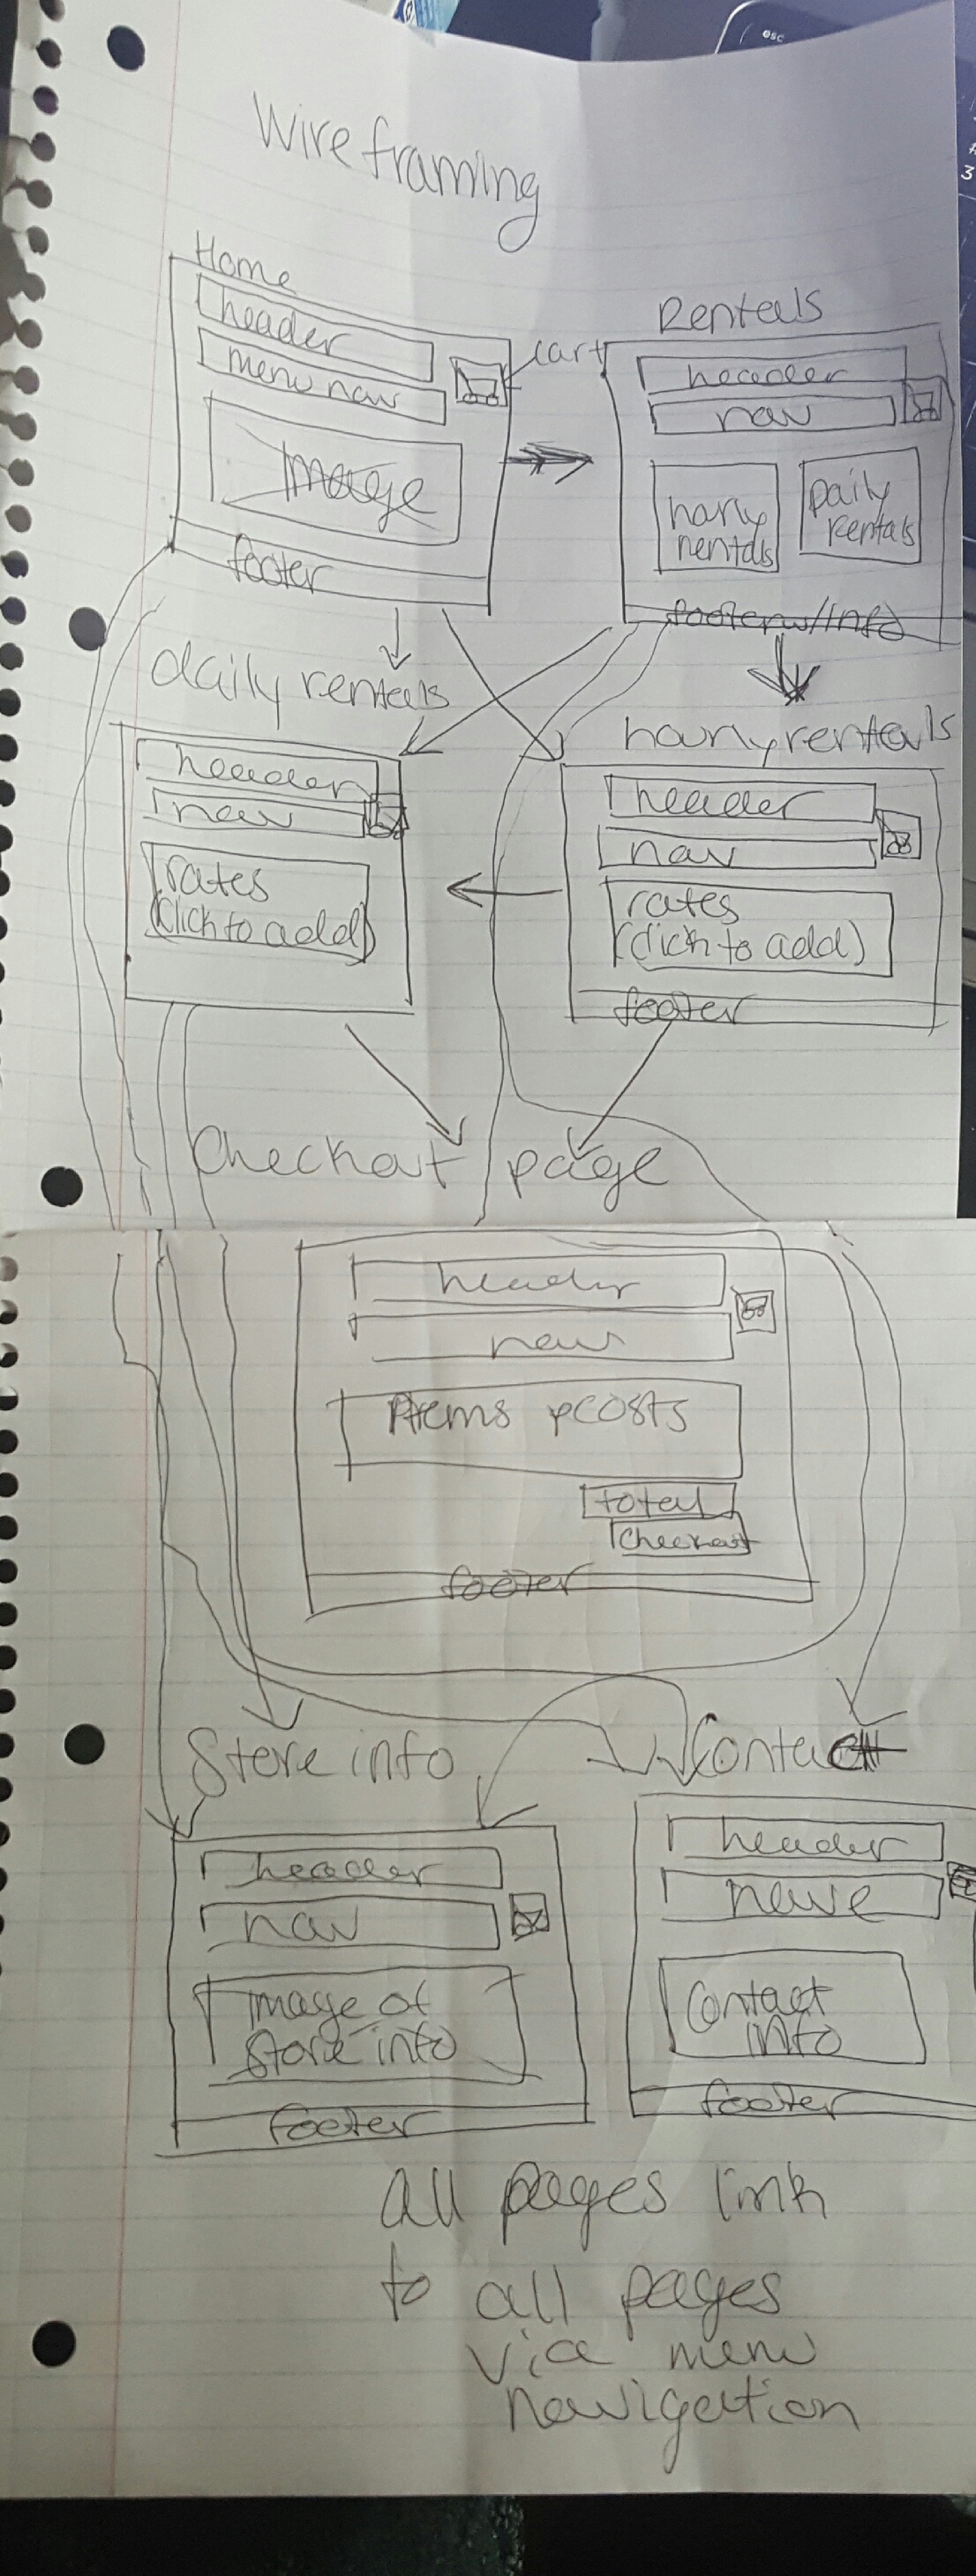 Wireframing
Home
header
menu nav
cart
Image
footer
Rentals
header
nav
hourly
rentals
Daily
rentals
footer w/info
daily rentals
header
nav
rates
(Click to add)
hourly rentals
header
nav
rates
(Click to add)
footer
Checkout page
header
nav
Items costs
total
Checkout
footer
Store info
header
nav
Image of
Store info
footer
Contact
header
nave
Contact
info
footer
all pages link
to all pages
via menu
navigation
esc
3